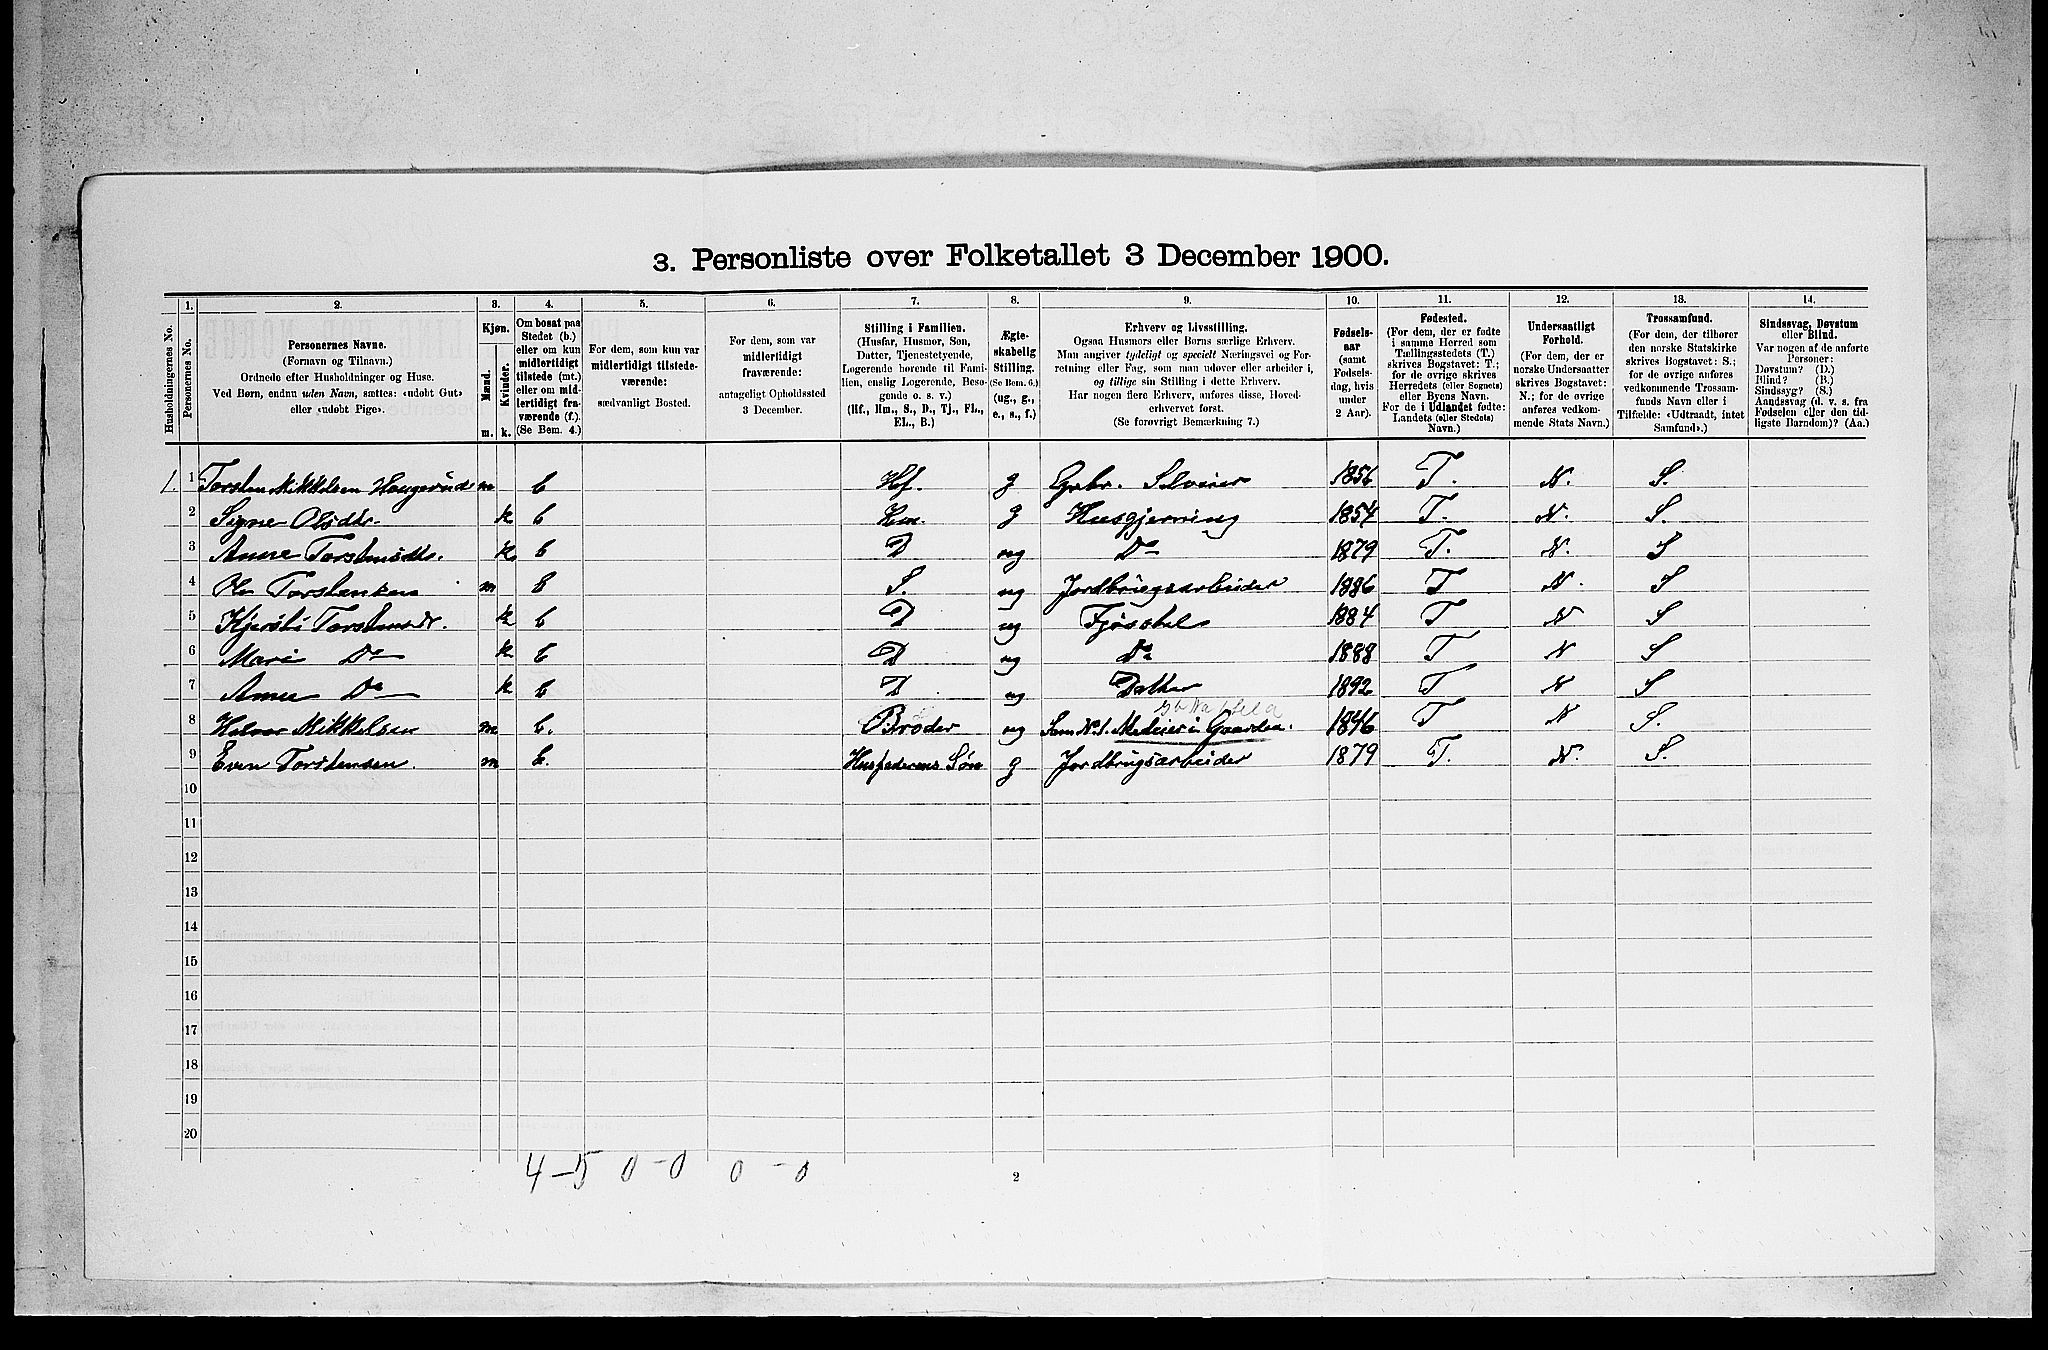 3. Personliste over Folketallet 3 December 1900.
Husholdningernes No.
1.
Personernes No.
2.
Personernes Navne.
(Fornavn og Tilnavn.)
Ordnede efter Husholdninger og Huse.
Ved Børn, endnu uden Navn, sættes: «udøbt Gut»
eller «udøbt Pige».
3.
Kjøn.
Mænd.
Kvinder.
m. k.
4.
Om bosat paa
Stedet (b.)
eller om kun
midlertidigt
tilstede (mt.)
eller om mid-
lertidigt fra-
værende (f.).
(Se Bem. 4.)
5.
For dem, som kun var
midlertidigt tilstede-
værende:
sædvanligt Bosted.
6.
For dem, som var
midlertidigt
fraværende:
antageligt Opholdssted
3 December.
7.
Stilling i Familien.
(Husfar, Husmor, Søn,
Datter, Tjenestetyende,
Logerende hørende til Fami-
lien, enslig Logerende, Besø-
gende o. s. v.)
(Hf., Hm., S., D., Tj., FL.,
EL., B.)
8.
Ægte-
skabelig
Stilling.
(Se Bem. 6.)
(ug., g.,
e., s., f.)
9.
Erhverv og Livsstilling.
Ogsaa Husmors eller Børns særlige Erhverv.
Man angiver tydeligt og specielt Næringsvei og For-
retning eller Fag, som man udøver eller arbeider i,
og tillige sin Stilling i dette Erhverv.
Har nogen flere Erhverv, anføres disse, Hoved-
erhvervet først.
(Se forøvrigt Bemærkning 7.)
10.
Fødsels-
aar
(samt
Fødsels-
dag, hvis
under
2 Aar).
11.
Fødested.
(For dem, der er fødte
i samme Herred som
Tællingsstedets (T.)
skrives Bogstavet: T.;
for de øvrige skrives
Herredets (eller Sognets)
eller Byens Navn.
For de i Udlandet fødte:
Landets (eller Stedets)
Navn.)
12.
Undersaatligt
Forhold.
(For dem, der er
norske Undersaatter
skrives Bogstavet:
N.; for de øvrige
anføres vedkom-
mende Stats Navn.)
13.
Trossamfund.
(For dem, der tilhører
den norske Statskirke
skrives Bogstavet: S.;
for de øvrige anføres
vedkommende Trossam-
funds Navn eller i
Tilfælde: «Udtraadt, intet
Samfund».)
14.
Sindssvag, Døvstum
eller Blind.
Var nogen af de anførte
Personer:
Døvstum? (D.)
Blind? (B.)
Sindssyg? (S.)
Aandssvag (d. v. s. fra
Fødselen eller den tid-
ligste Barndom)? (Aa.)
1. 1 Torsten Mikkelsen Haugerud m b Hf. g Grbr. Selveier 1856 T. N. S.
2 Signe Olsdtr. k b Hm. g Husgjerning 1854 T. N. S.
3 Anne Torstensdtr. k b D ug Do 1879 T. N. S
4 Ole Torstensen m b S. ug Jordbrugsarbeider 1886 T N. S
5 Kjersti Torstensdr. k b D ug Fjøsstel 1884 T N S
6 Mari Do k b D ug Do 1888 T N S
7 Anne Do k b D ug Datter 1892 T N S
8 Halvor Mikkelsen m b. Broder ug Sam No. 1. Medeier i Gaarden. 1846 T N S.
9 Even Torstensen. m b. Husfaderens Søn g Jordbrugsarbeider 1879 T. N. S.
10
11
12
13
14
15
16
17
18
19
20
4-5 0-0 0-0
2